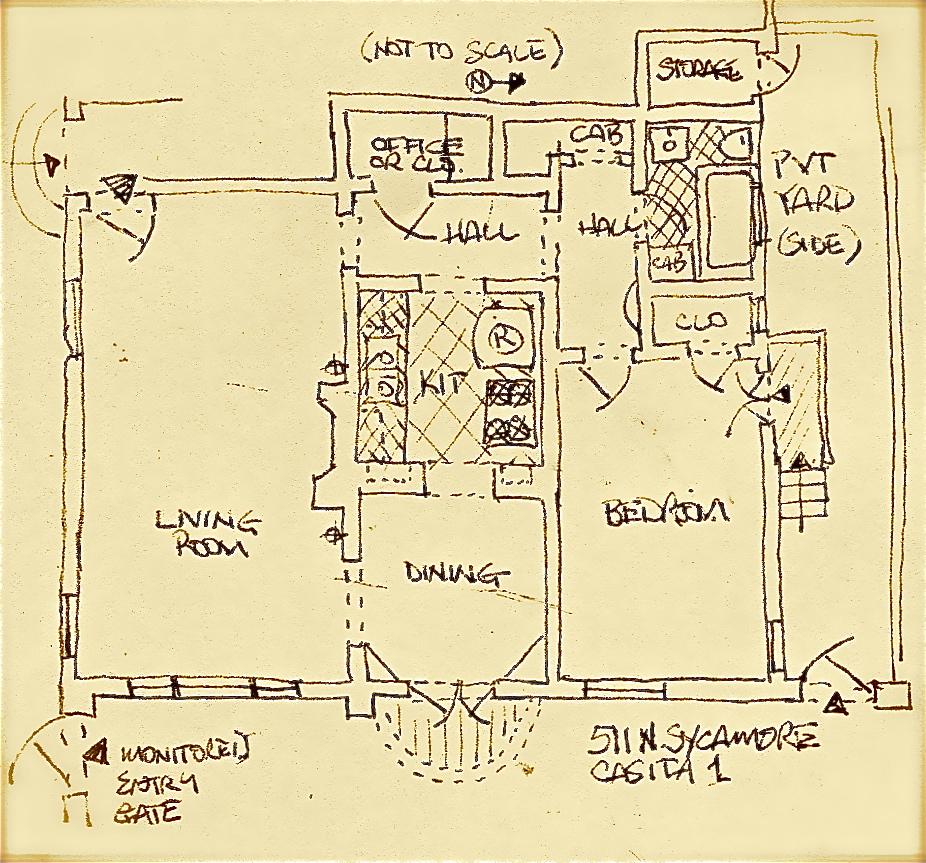 (NOT TO SCALE)
N
STORAGE
OFFICE
OR CLO.
CAB
PVT
YARD
(SIDE)
HALL
HALL
CAB
CLO
R
KIT
LIVING
ROOM
DINING
BEDROOM
511 N. SYCAMORE
CASITA 1
MONITORED
ENTRY
GATE